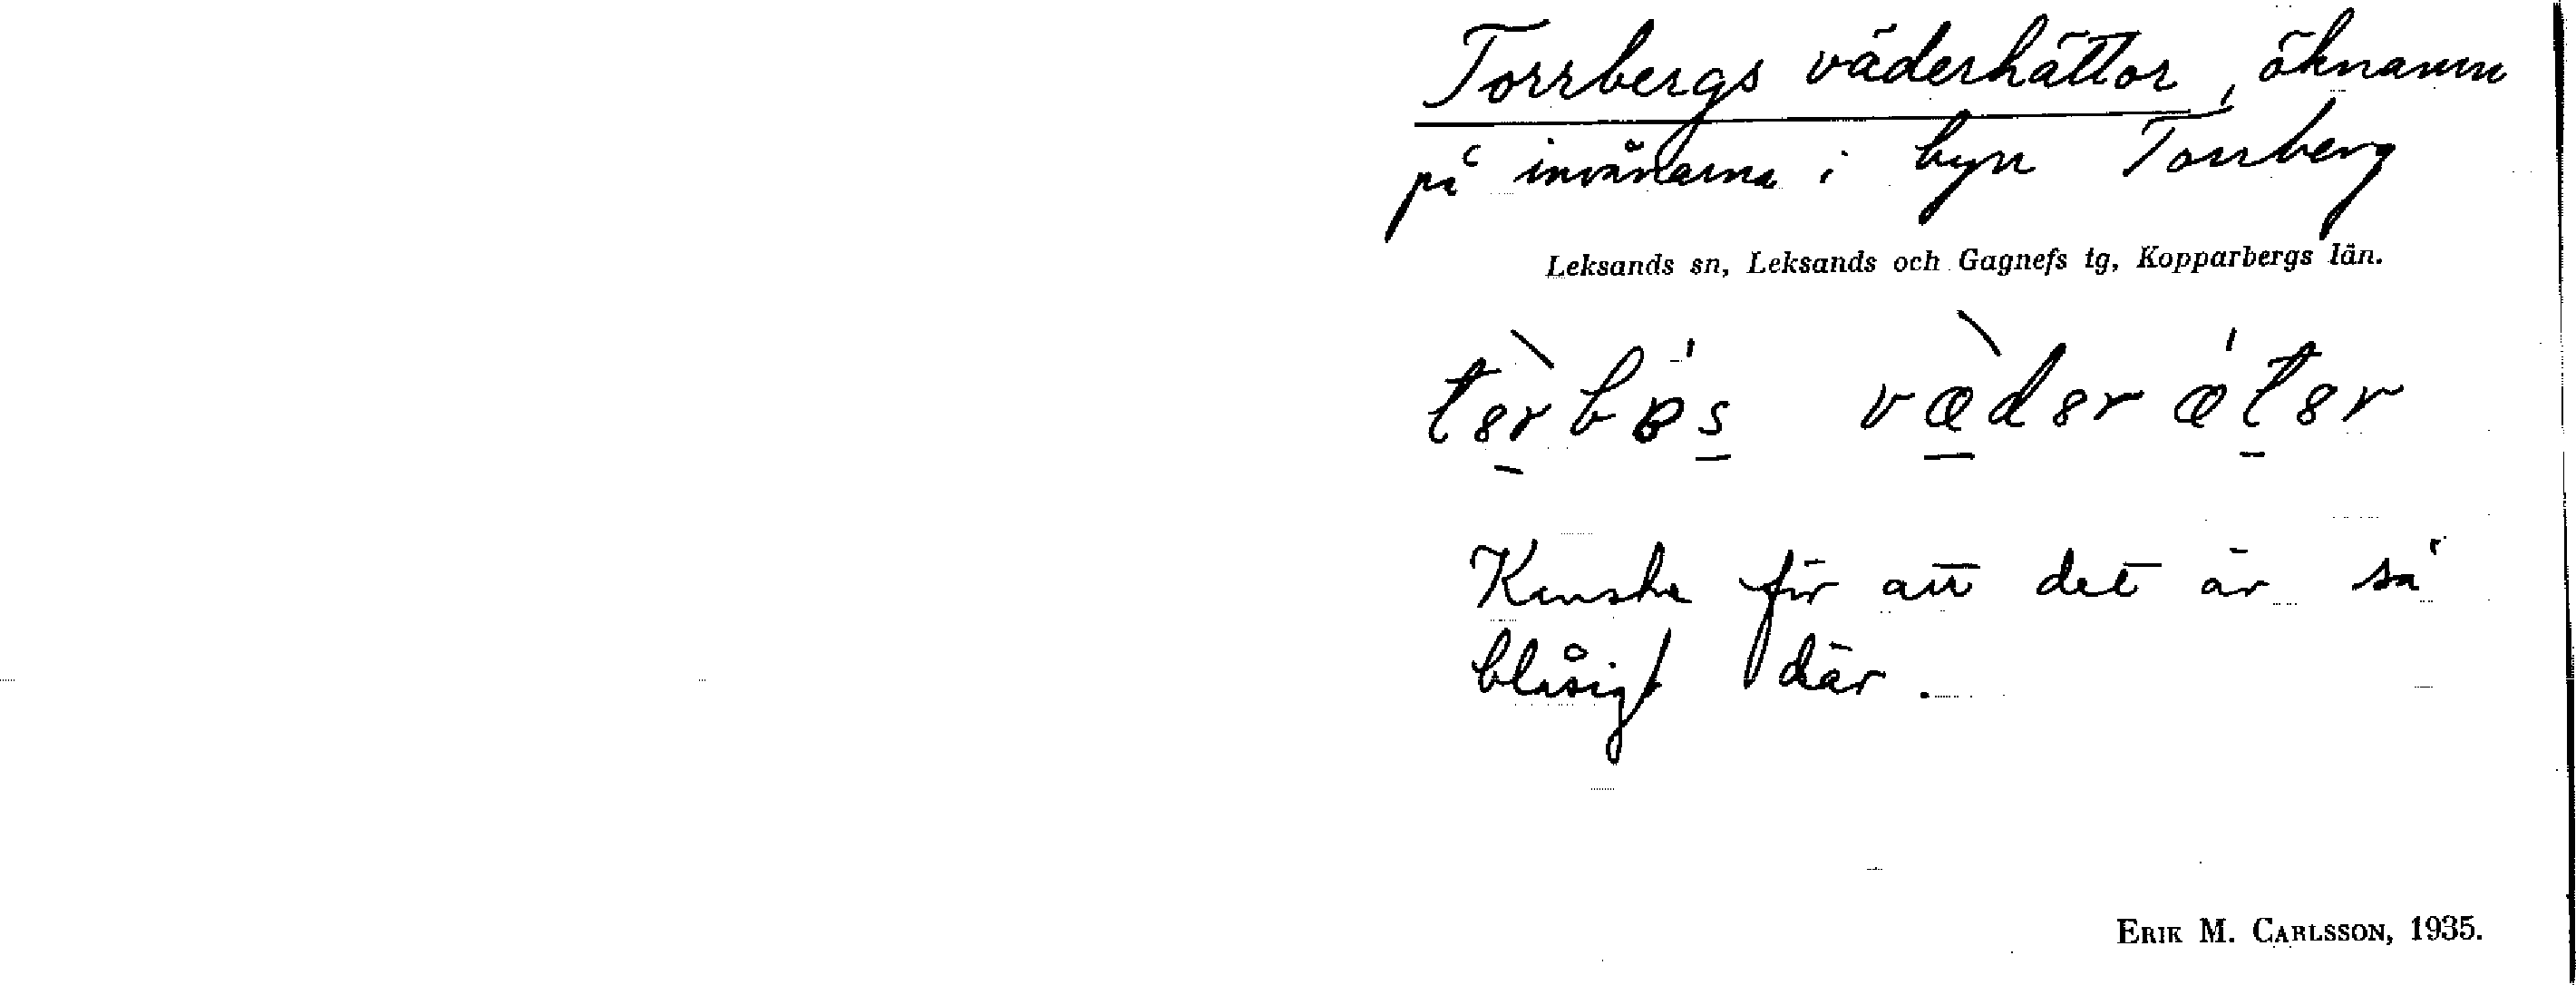 Torrbergs väderhättor, öknamn
på invånarna i byn Torrberg
Leksands sn, Leksands och Gagnefs tg, Kopparbergs län.
Kanske för att det är så
blåsigt där.
ERIK M. CARLSSON, 1935.